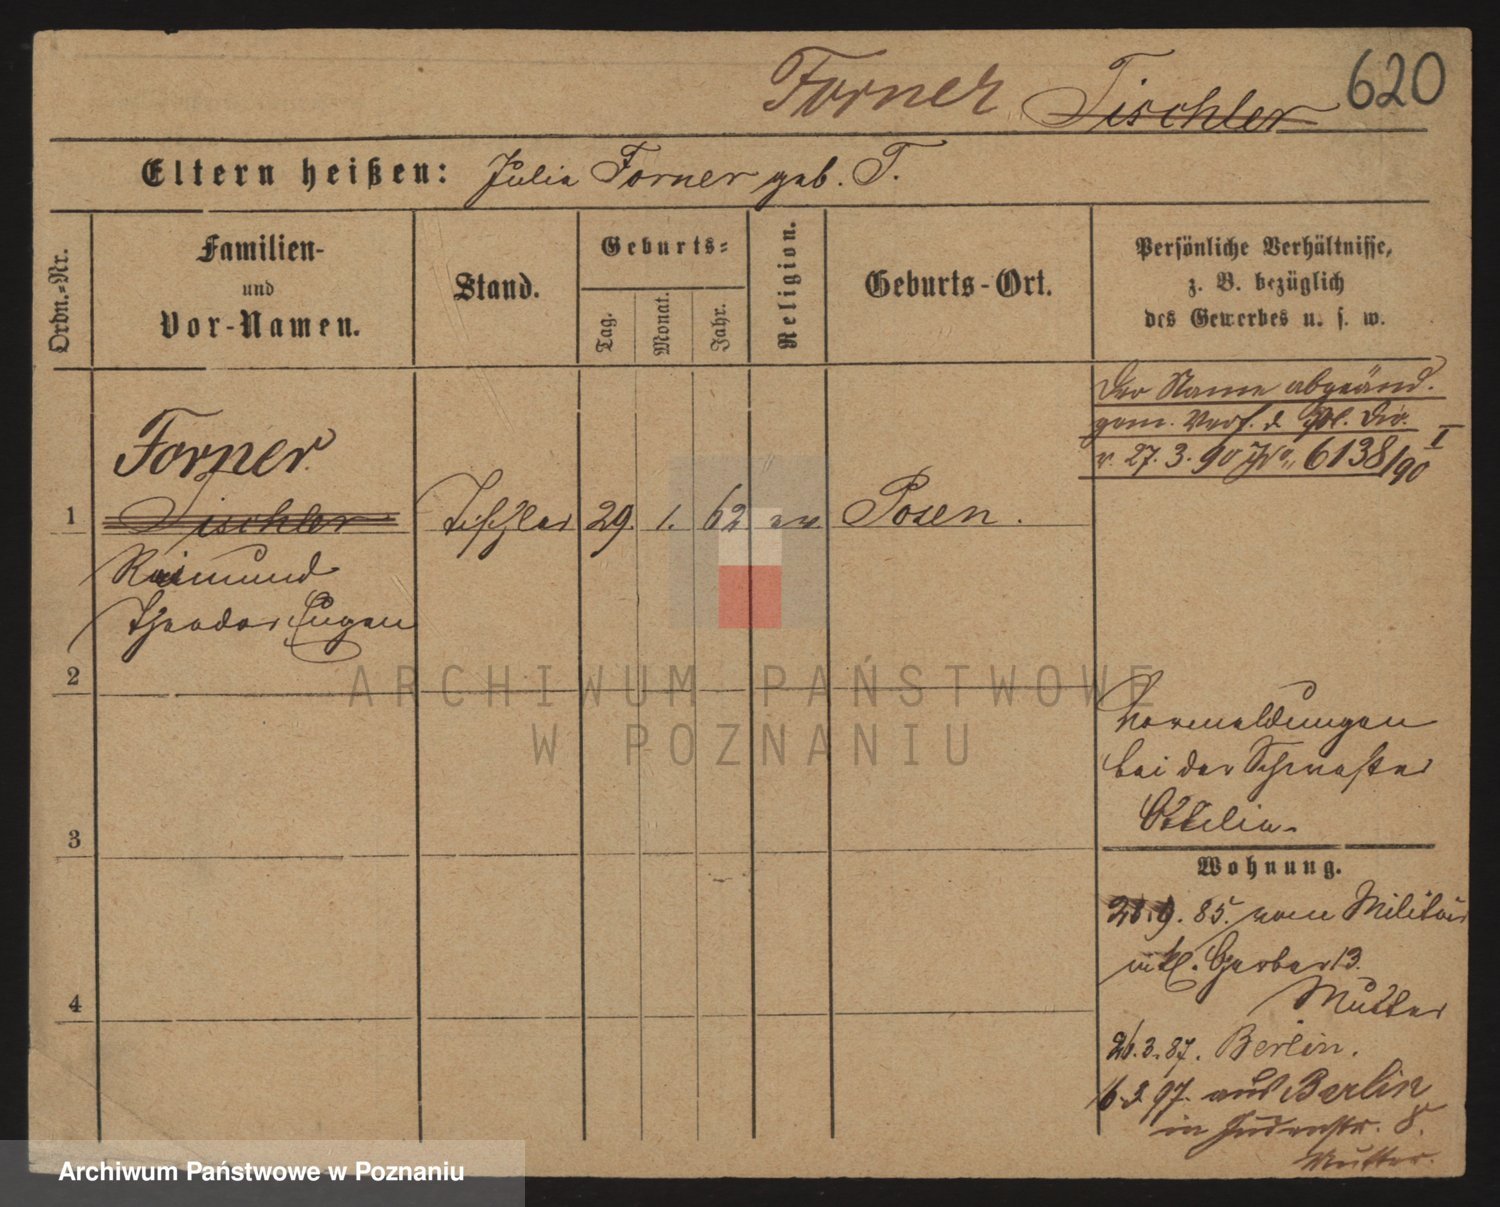 Forner Tischler 620
Eltern heißen: Julie Forner geb. T.
Ordn.-Nr.
Familien-
und
Vor-Namen.
Stand.
Geburts-
Tag.
Monat.
Jahr.
Religion.
Geburts-Ort.
Persönliche Verhältnisse,
z. B. bezüglich
des Gewerbes u. s. w.
Der Name abgeänd.
gem. Verf. d. Pol. Dir.
v. 27. 3. 90 No 6138/90 I
Forner
1 Tischler Tischler 29. 1. 62 ev Posen.
Raimund
Theodor Eugen
2
Vormeldungen
bei der Schwester
Ottilie
3
Wohnung.
9. 85. vom Militär
Gerber 13.
Mutter
4
26.3.87. Berlin.
97. aus Berlin
in Judenstr. 8.
Mutter.
ARCHIWUM PAŃSTWOWE
W POZNANIU
Archiwum Państwowe w Poznaniu